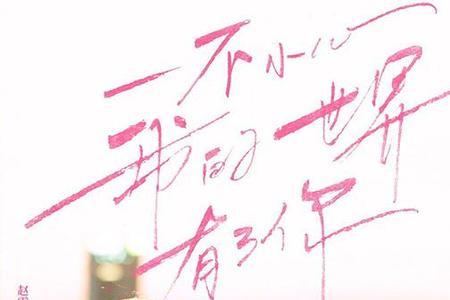 一不小心
我的世界
有了你
赵